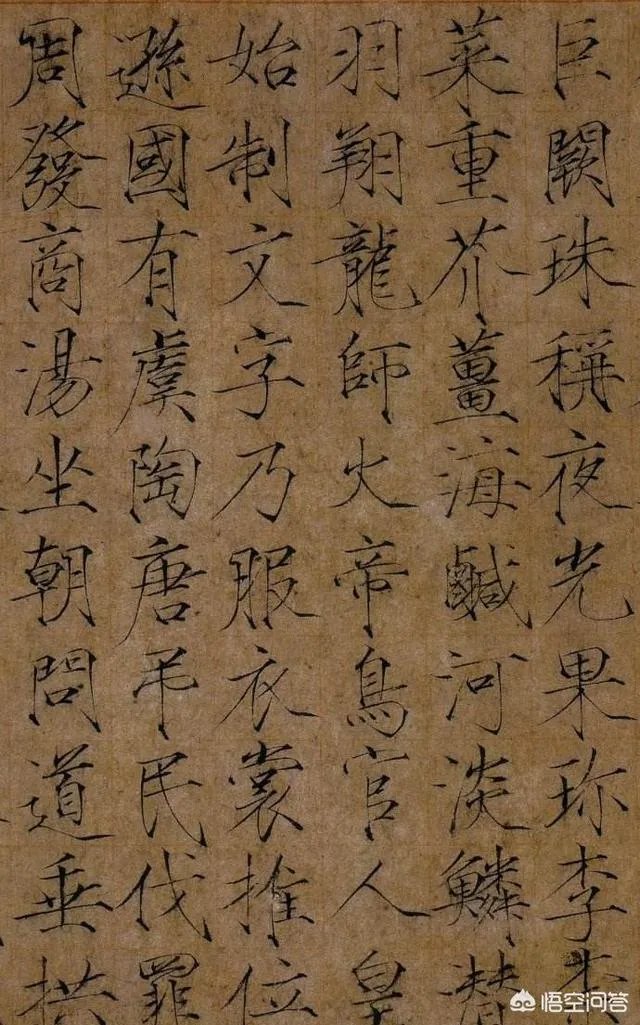 巨闕珠稱夜光果珎李柰
菜重芥薑海鹹河淡鱗潛
羽翔龍師火帝鳥官人皇
始制文字乃服衣裳推位
遜國有虞陶唐弔民伐罪
周發商湯坐朝問道垂拱
悟空问答